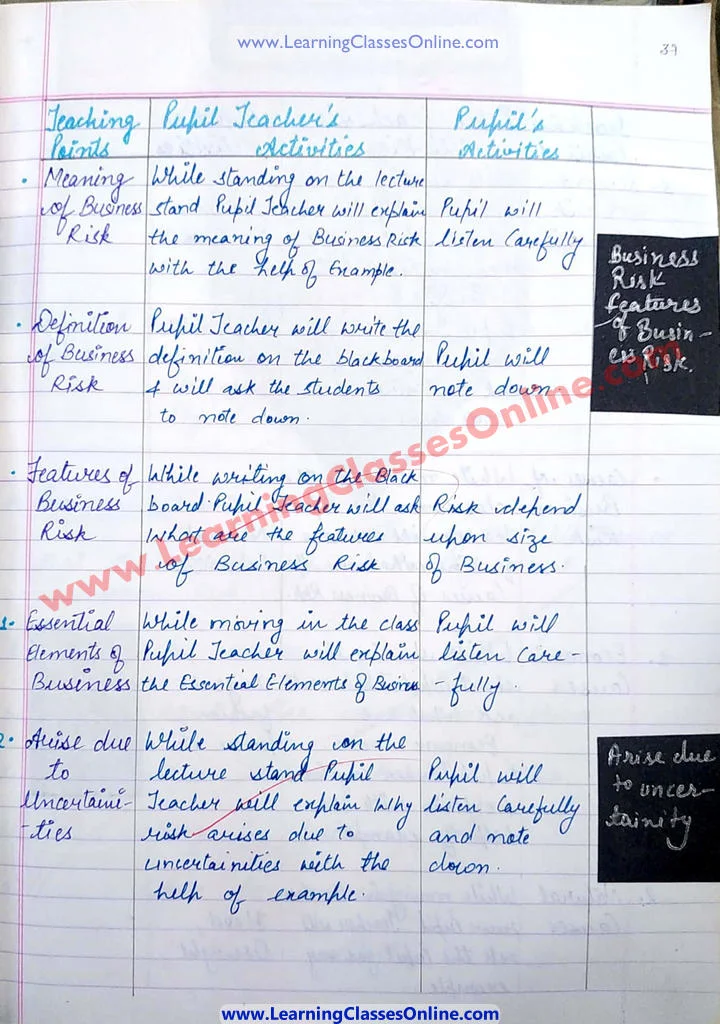 www.LearningClassesOnline.com
37
Teaching
Points
Pupil Teacher's
Activities
Pupil's
Activities
• Meaning
of Business
Risk
While standing on the lecture
stand Pupil Teacher will explain
the meaning of Business Risk
with the help of Example.
Pupil will
listen Carefully
Business
Risk
features
of Busin-
ess Risk.
• Definition
of Business
Risk
Pupil Teacher will write the
definition on the blackboard
& will ask the students
to note down.
Pupil will
note down
• Features of
Business
Risk
While writing on the Black
board Pupil Teacher will ask
What are the features
of Business Risk
Risk depend
upon size
of Business.
www.LearningClassesOnline.com
1. Essential
Elements of
Business
While moving in the class
Pupil Teacher will explain
the Essential Elements of Busines
Pupil will
listen Care-
-fully.
2. Arise due
to
Uncertaini-
-ties
While standing on the
lecture stand Pupil
Teacher will explain Why
risk arises due to
uncertainities with the
help of example.
Pupil will
listen Carefully
and note
down.
Arise due
to uncer-
tainity
www.LearningClassesOnline.com